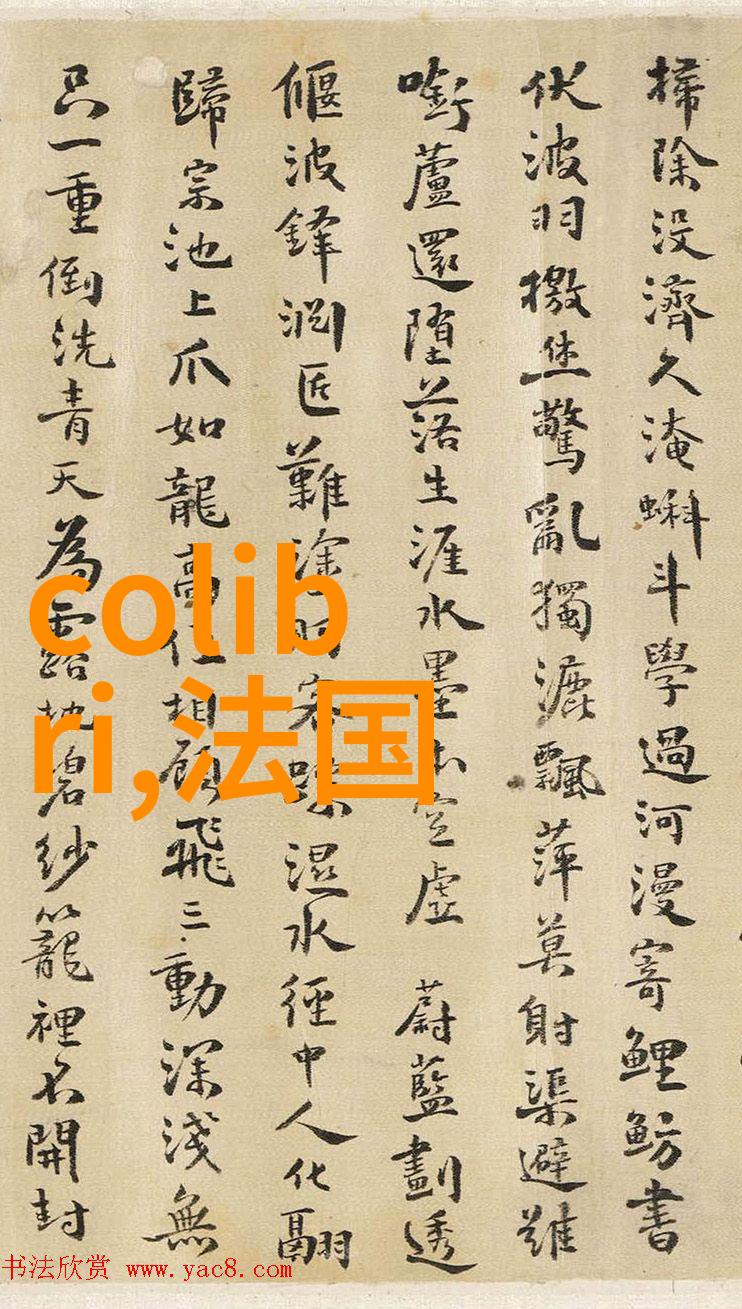 掃除没濟久淹蝌斗學過河漫寄鯉魴書
伏波羽檄焦驚亂獨漉飄萍莫射渠避難
啣蘆還墮落生涯水墨本空虛 蔚藍劃透
偃波鋒涧匠難塗
濕水徑中人化翮
歸宗池上爪如龍高
相顧飛三動深淺無
只一重倒洗青天為露地碧紗籠裡不開封
colib
ri,法国
书法欣赏 www.yac8.com